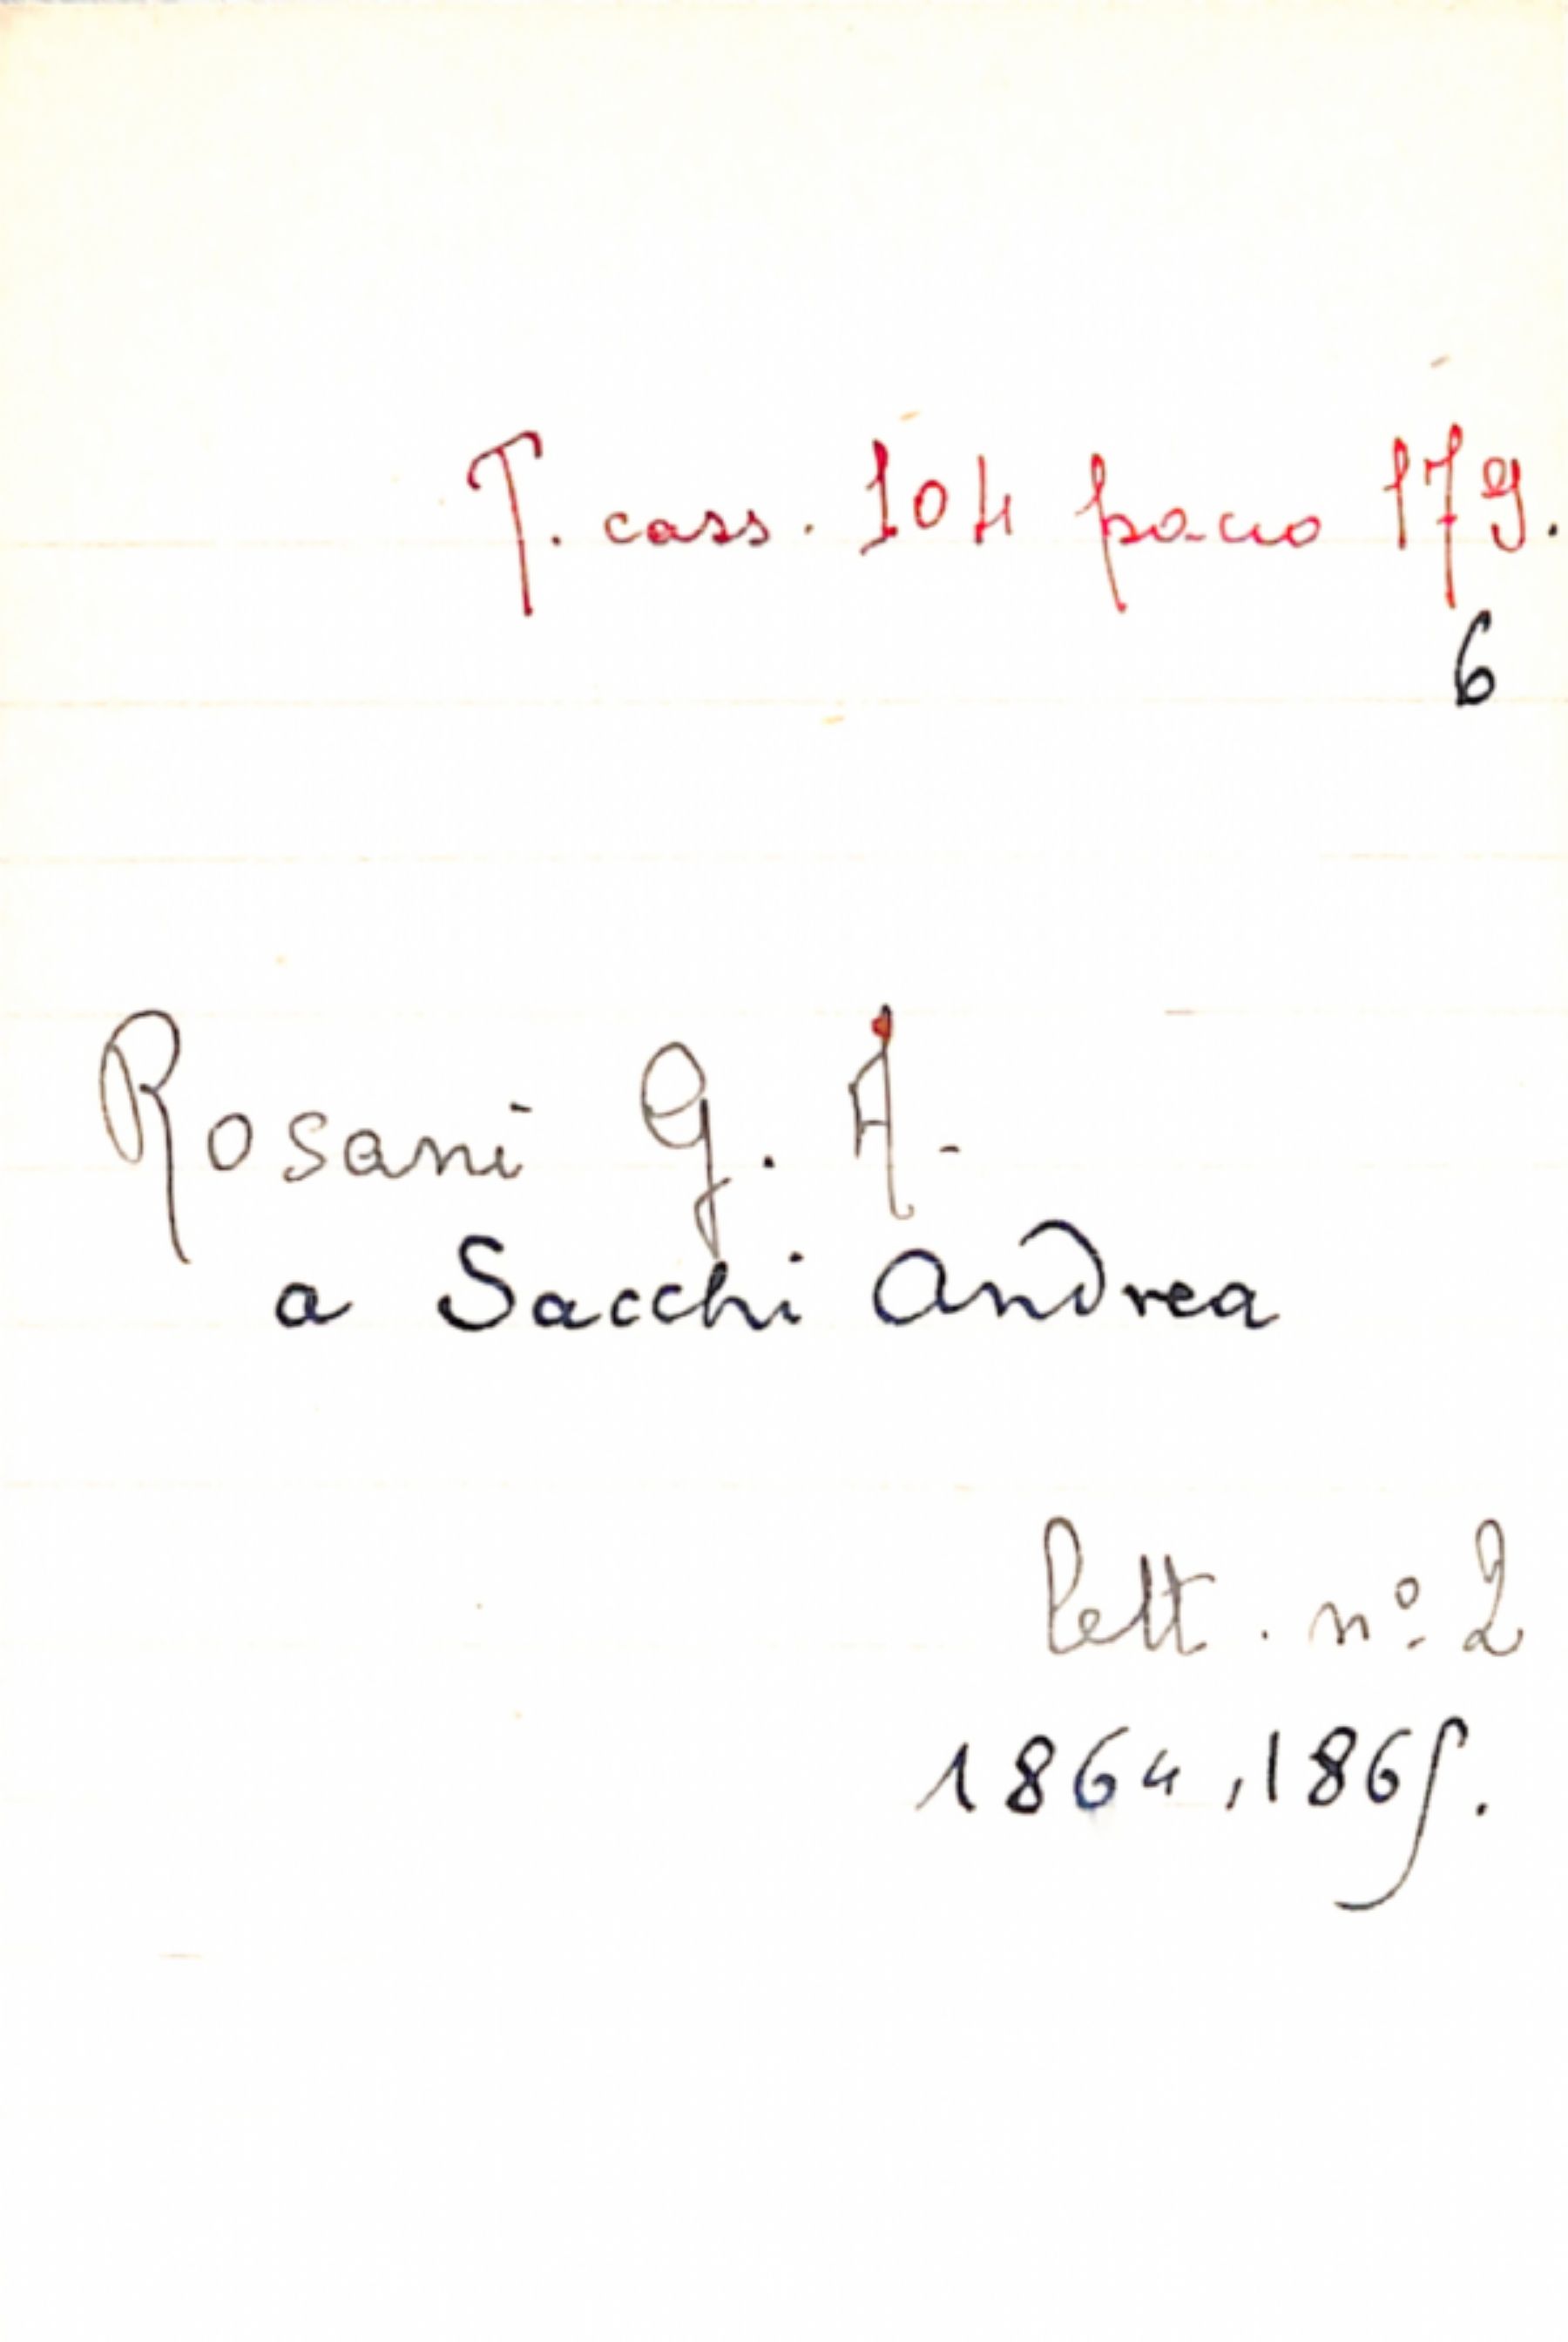 T. cass. 104 pacco 179.
6
Rosani G. A.
a Sacchi Andrea
lett. nº 2
1864, 1865.